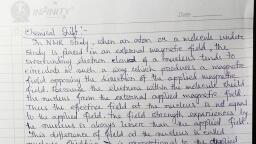 INFINITY
Date
Chemical Shift:-
In NMR Study, when an atom or a molecule under
study is placed in an external magnetic field, the
surrounding electron cloud of a nucleus tends to
circulate in such a way which produces a magnetic
field opposing the direction of the applied magnetic
field. Because the electrons within the molecule shield
the nucleus from the external applied magnetic field.
Thus the effective field at the nucleus is not equal
to the applied field. The field strength experiences by
the nucleus is always lower than the applied field.
This difference of field at the nucleus is called
is proportional to the applied